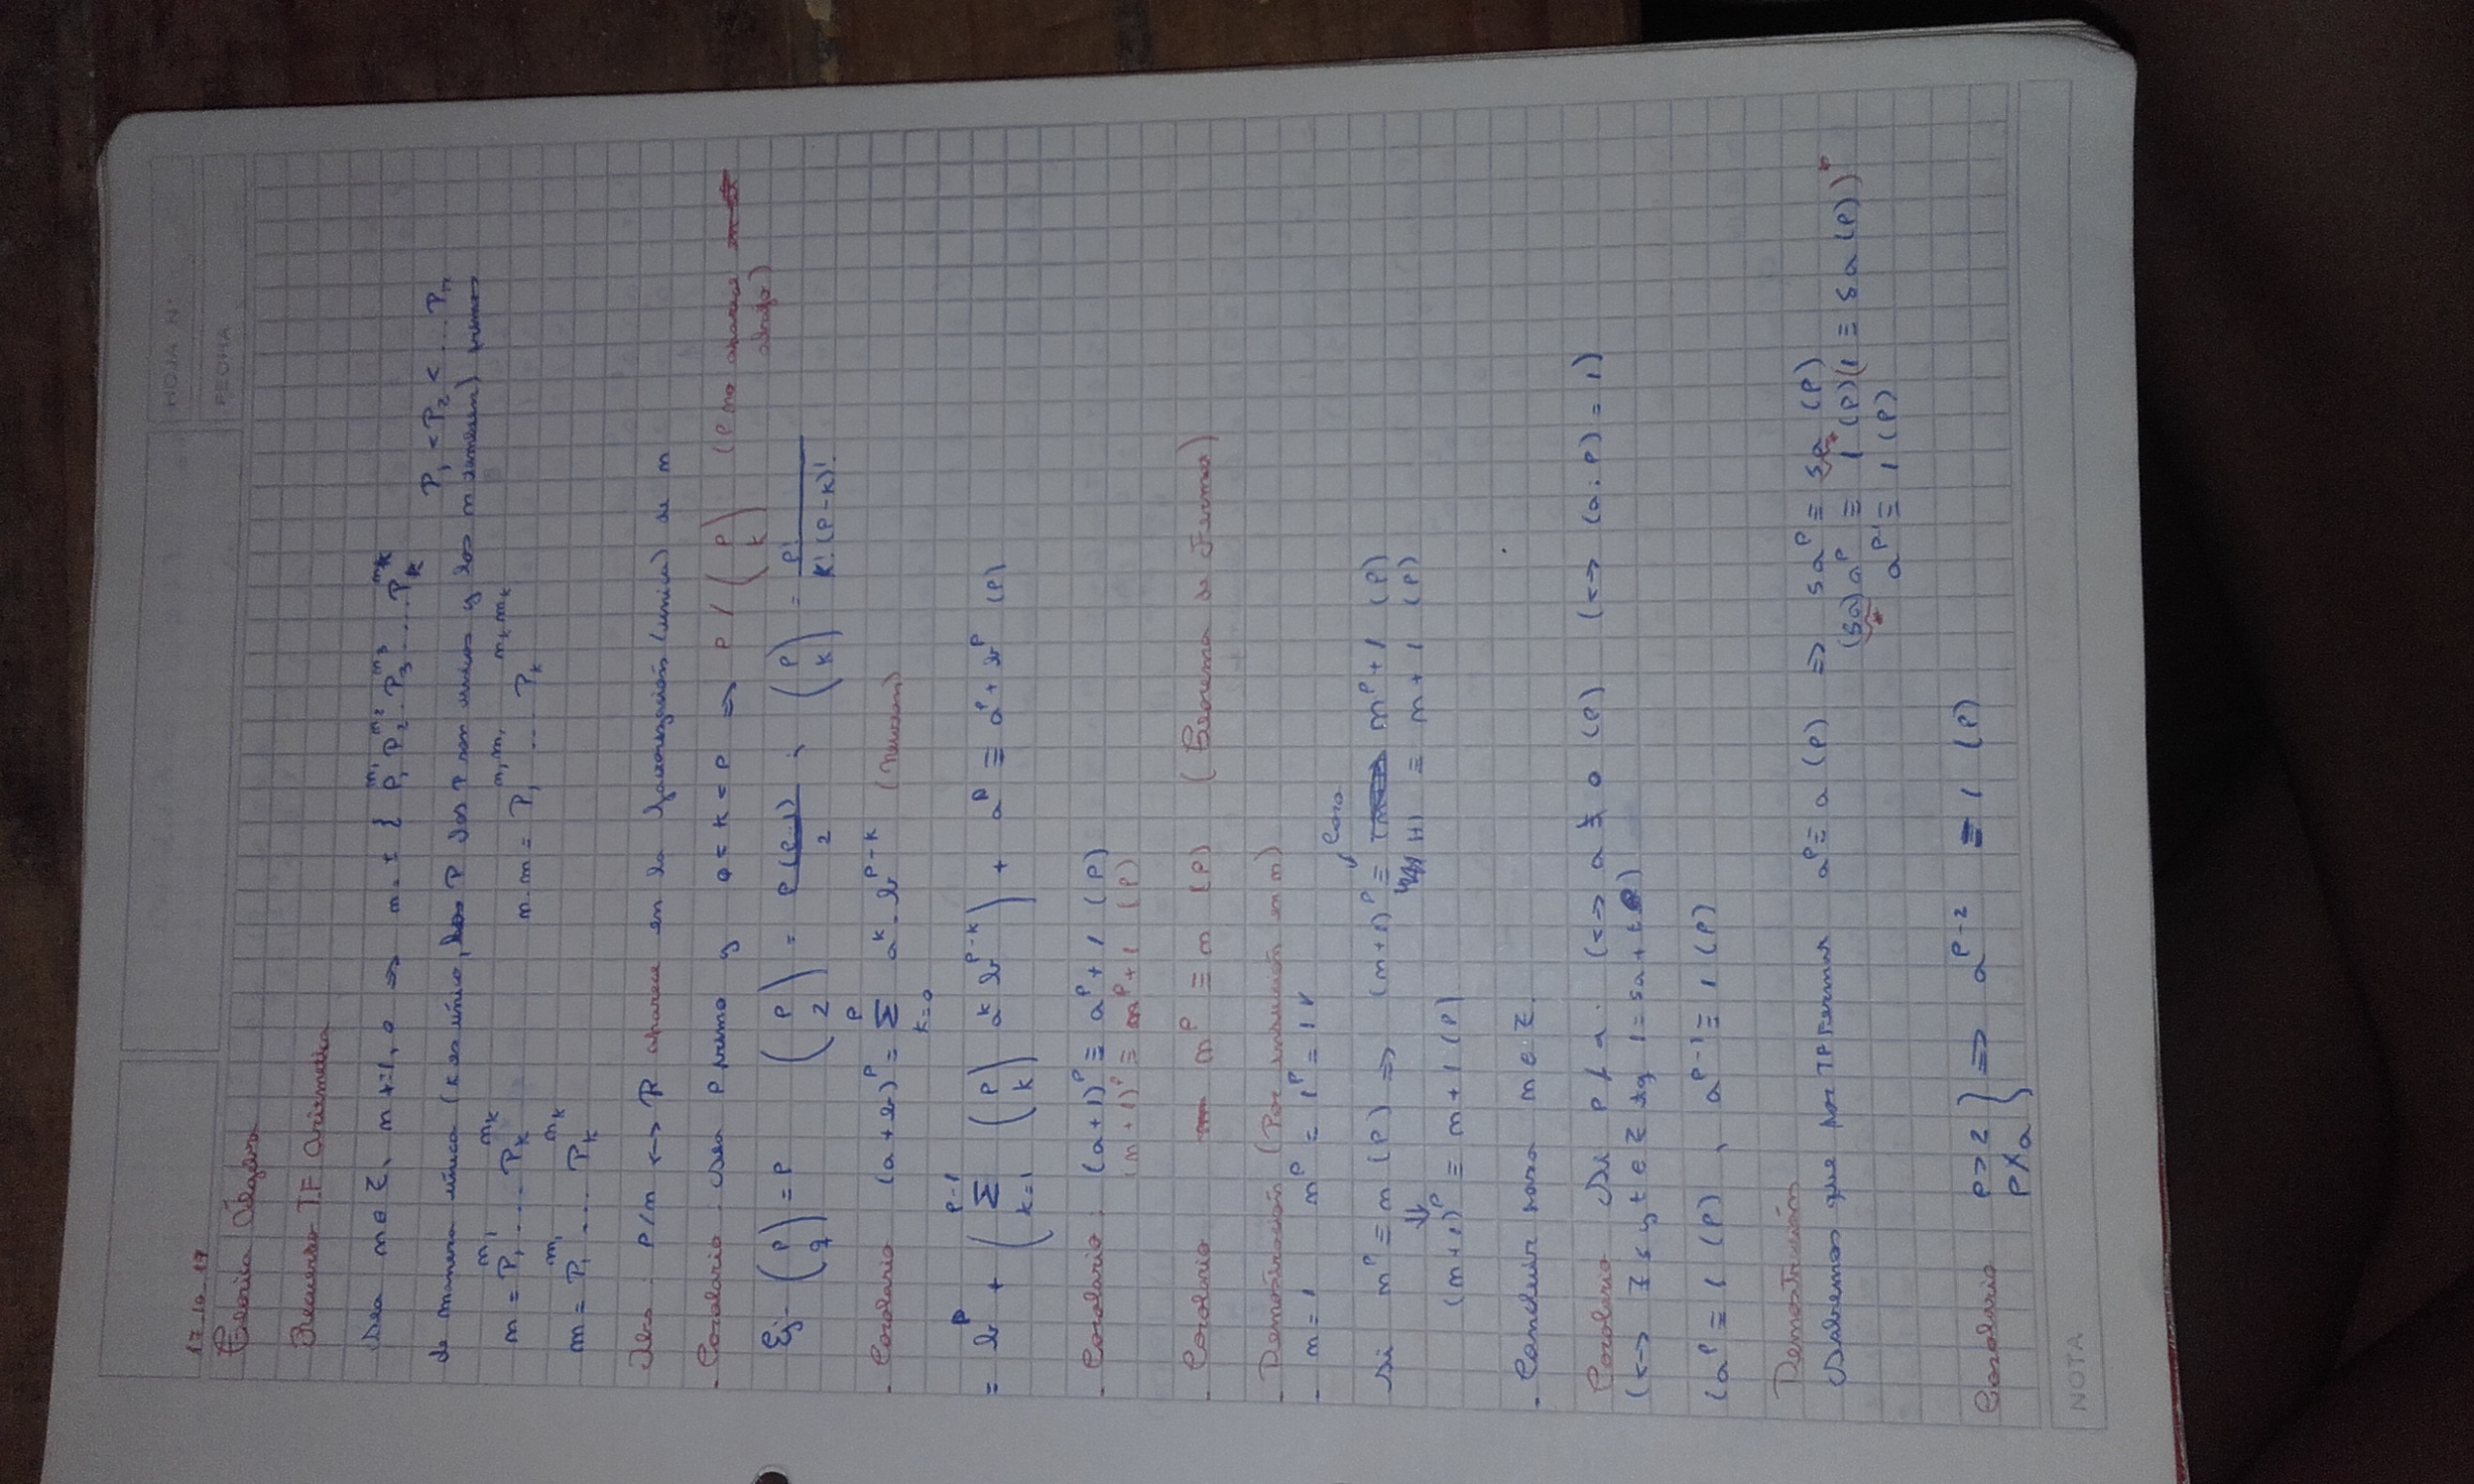 HOJA N°
FECHA
17-10-17
Teorica Álgebra
Recuerdo T.F Aritmetica
Sea m ∈ Z, m ≠ ±1, 0 ⇒ m = ± { P₁^m₁ P₂^m₂ . P₃^m₃ ... P_k^m_k
P₁ < P₂ < ... Pₙ
de manera única (k es único, los P son unicos y los m tambien) primos
m = P₁^m₁ .... P_k^m_k n.m = P₁^n₁m₁ ... P_k^n_k m_k
m = P₁^m₁ .... P_k^m_k
P/n ↔ P aparece en la factorización (unica) de n
- Corolario : Sea P primo y 0 < k < P ⇒ P / (P k) (P no aparece
abajo)
Ej- (P 1) = P (P 2) = P(P-1)/2 ; (P k) = P!/K!(P-K)!
- Corolario (a+b)^P = Σ_{k=0}^{P} a^k . b^{P-k} (Newton)
= b^P + ( Σ_{k=1}^{P-1} (P k) a^k b^{P-k} ) + a^P ≡ a^P + b^P (P)
- Corolario : (a+1)^P ≡ a^P + 1 (P)
(m+1)^P ≡ m^P + 1 (P)
- Corolario m^P ≡ m (P) (Teorema de Fermat)
- Demostración (Por inducción en m)
- m = 1 m^P = 1^P = 1 ✓
Coro
Si m^P ≡ m (P) ⇒ (m+1)^P ≡ m^P + 1 (P)
⇓ HI ≡ m + 1 (P)
(m+1)^P ≡ m + 1 (P)
- Concluir para m ∈ Z.
Corolario Si P ∤ a . (↔ a ≢ 0 (P) (↔ (a:P) = 1)
(↔ ∃ s y t ∈ Z tq 1 = sa + tP)
(a^P ≡ 1 (P) , a^{P-1} ≡ 1 (P)
Demostración
Sabemos que por TP Fermat a^P ≡ a (P) ⇒ sa^P ≡ sa (P)
(sa) a^P ≡ 1* (P) (1 ≡ sa (P))*
a^{P-1} ≡ 1 (P)
Corolario P > 2 } ⇒ a^{P-2} ≡ 1 (P)
P ∤ a
NOTA